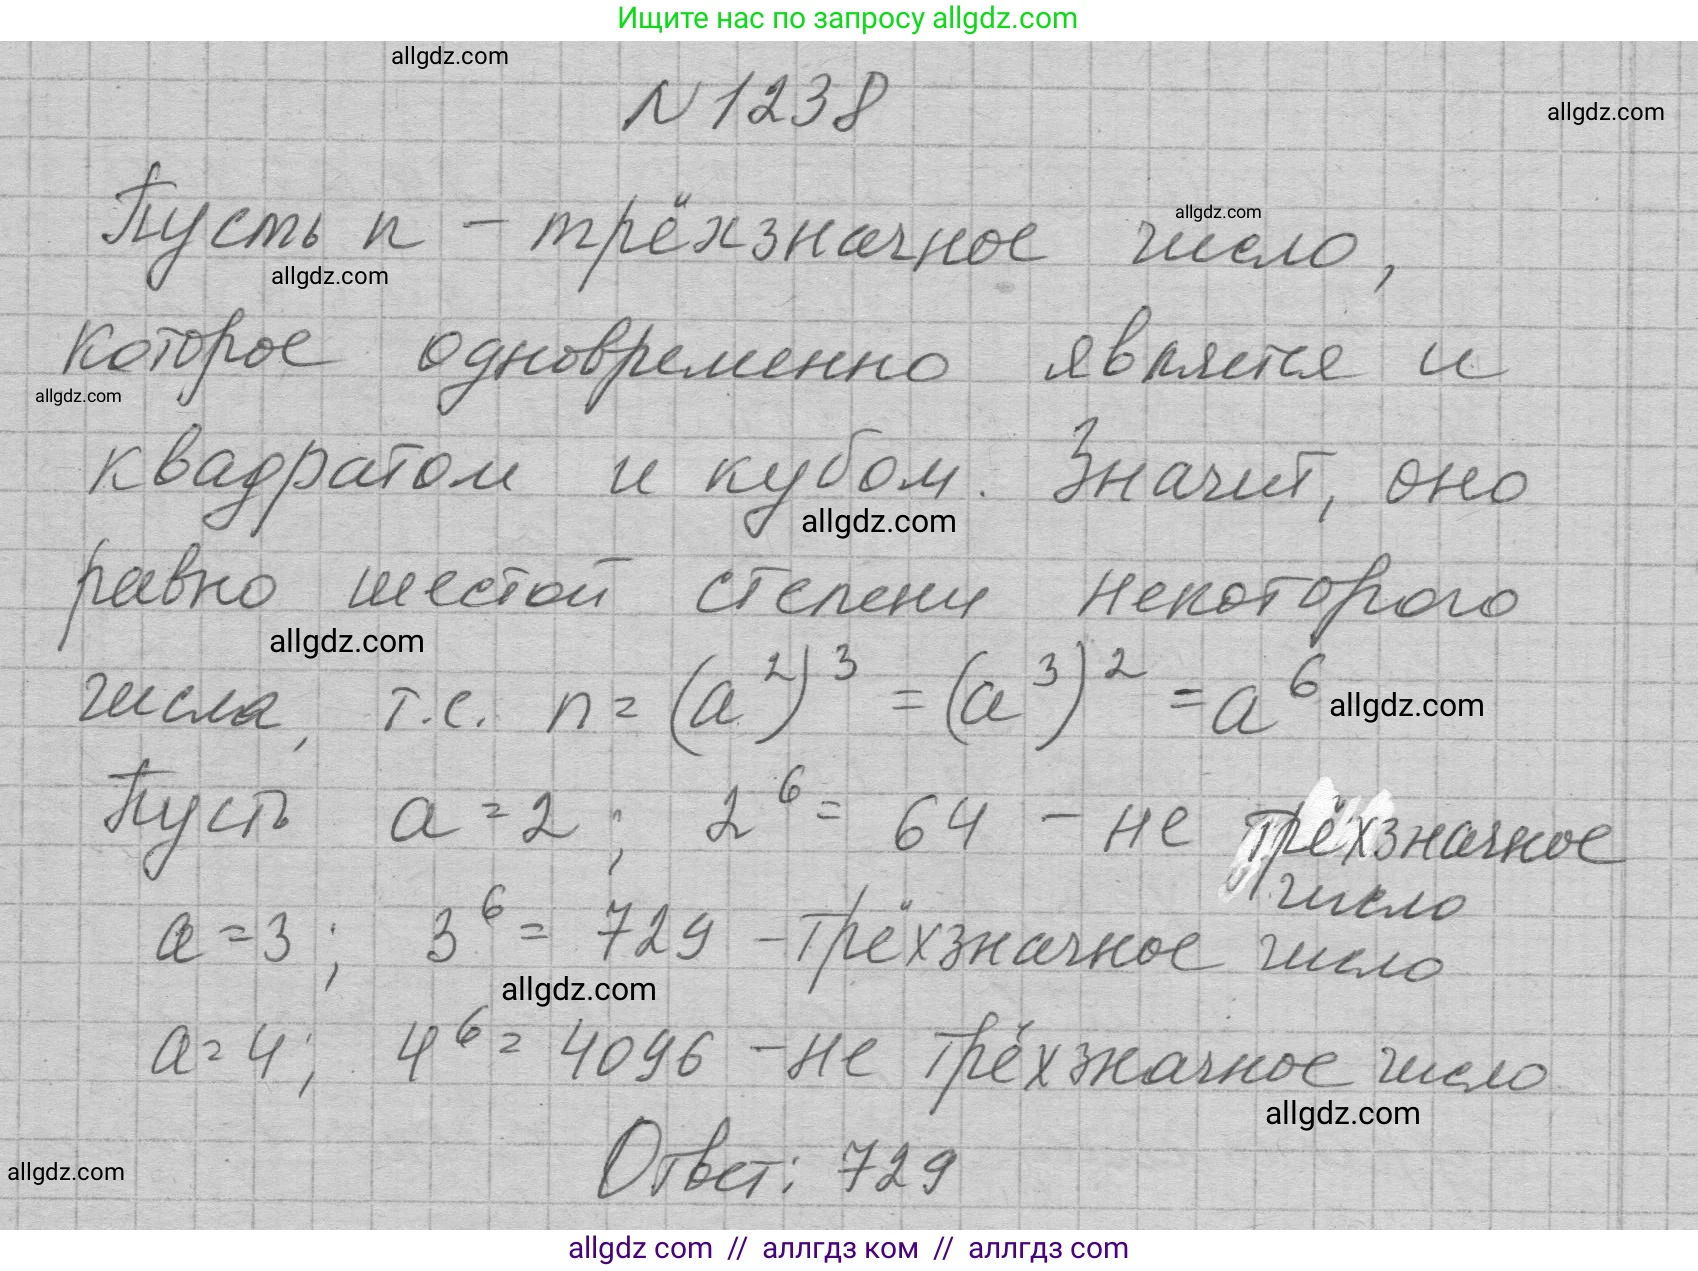 Ищите нас по запросу allgdz.com
allgdz.com
N 1238
allgdz.com
Пусть n – трёхзначное число,
allgdz.com
allgdz.com
которое одновременно является и
allgdz.com
квадратом и кубом. Значит, оно
allgdz.com
равно шестой степени некоторого
allgdz.com
числа, т.е. n = (a²)³ = (a³)² = a⁶
allgdz.com
Пусть a = 2; 2⁶ = 64 – не трёхзначное
число
a = 3; 3⁶ = 729 – трёхзначное число
allgdz.com
a = 4; 4⁶ = 4096 – не трёхзначное число
allgdz.com
Ответ: 729
allgdz.com
allgdz com // аллгдз ком // аллгдз com